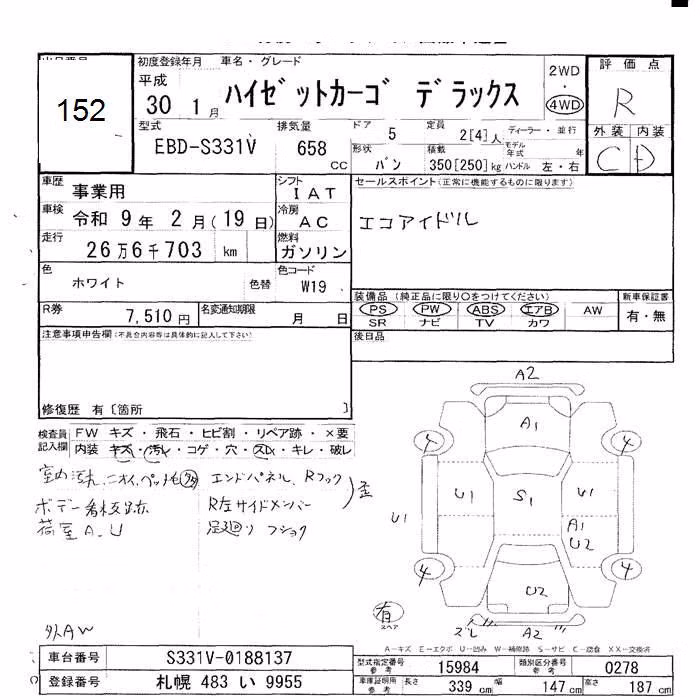 152
初度登録年月 車名・グレード
平成 30 1月 ハイゼットカーゴ デラックス
2WD
・
4WD
評価点
R
外装 内装
C D
型式 排気量 ドア 5 定員 2[4]人 ディーラー・並行
EBD-S331V 658 CC
形状 バン 積載 350[250]kg モデル年式 年
ハンドル 左・右
車歴 事業用 シフト IAT
セールスポイント(正常に機能するものに限ります)
車検 令和 9年 2月(19日) 冷房 AC
エコアイドル
走行 26万6千703 km 燃料 ガソリン
色 ホワイト 色替 色コード W19
装備品(純正品に限り○をつけてください) 新車保証書
PS PW ABS エアB AW 有・無
SR ナビ TV カワ
R券 7,510円 名変通知期限 月 日
注意事項申告欄(不具合内容等は具体的に記入して下さい)
後日品
修復歴 有〔箇所 〕
検査員記入欄
FW キズ・飛石・ヒビ割・リペア跡・×要
内装 キズ・汚レ・コゲ・穴・スレ・キレ・破レ
室内汚れ、ニオイ、ペット毛
エンドパネル、Rフック
ボデー看板跡
R左サイドメンバー
歪
荷室A、U
足廻り フショク
外AW
A2
A1
4 4
U1 U1 S1 U1
A1
U2
4 4
U2
有
スペア
ズレ A2
A－キズ E－エクボ U－凹み W－補修跡 S－サビ C－腐食 XX－交換済
車台番号 S331V-0188137
型式指定番号 参考 15984 類別区分番号 参考 0278
登録番号 札幌 483 い 9955
車庫証明用 参考 長さ 339cm 幅 147cm 高さ 187cm